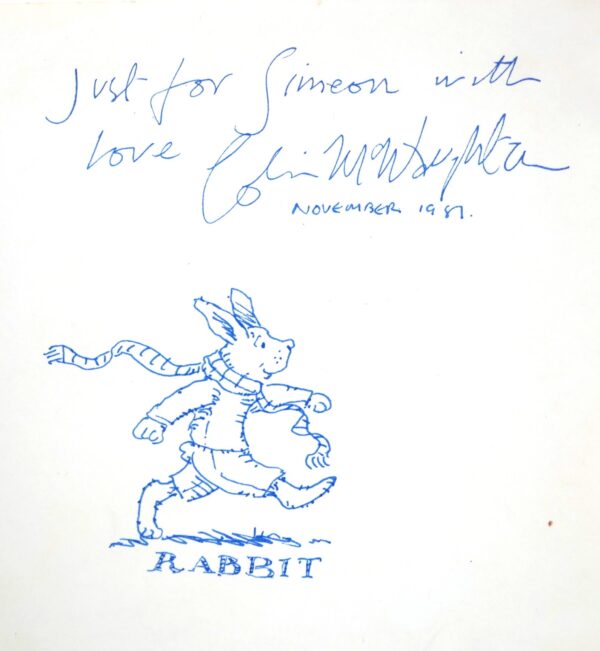 Just for Simeon with
love Colin McNaughton
NOVEMBER 1987.
RABBIT